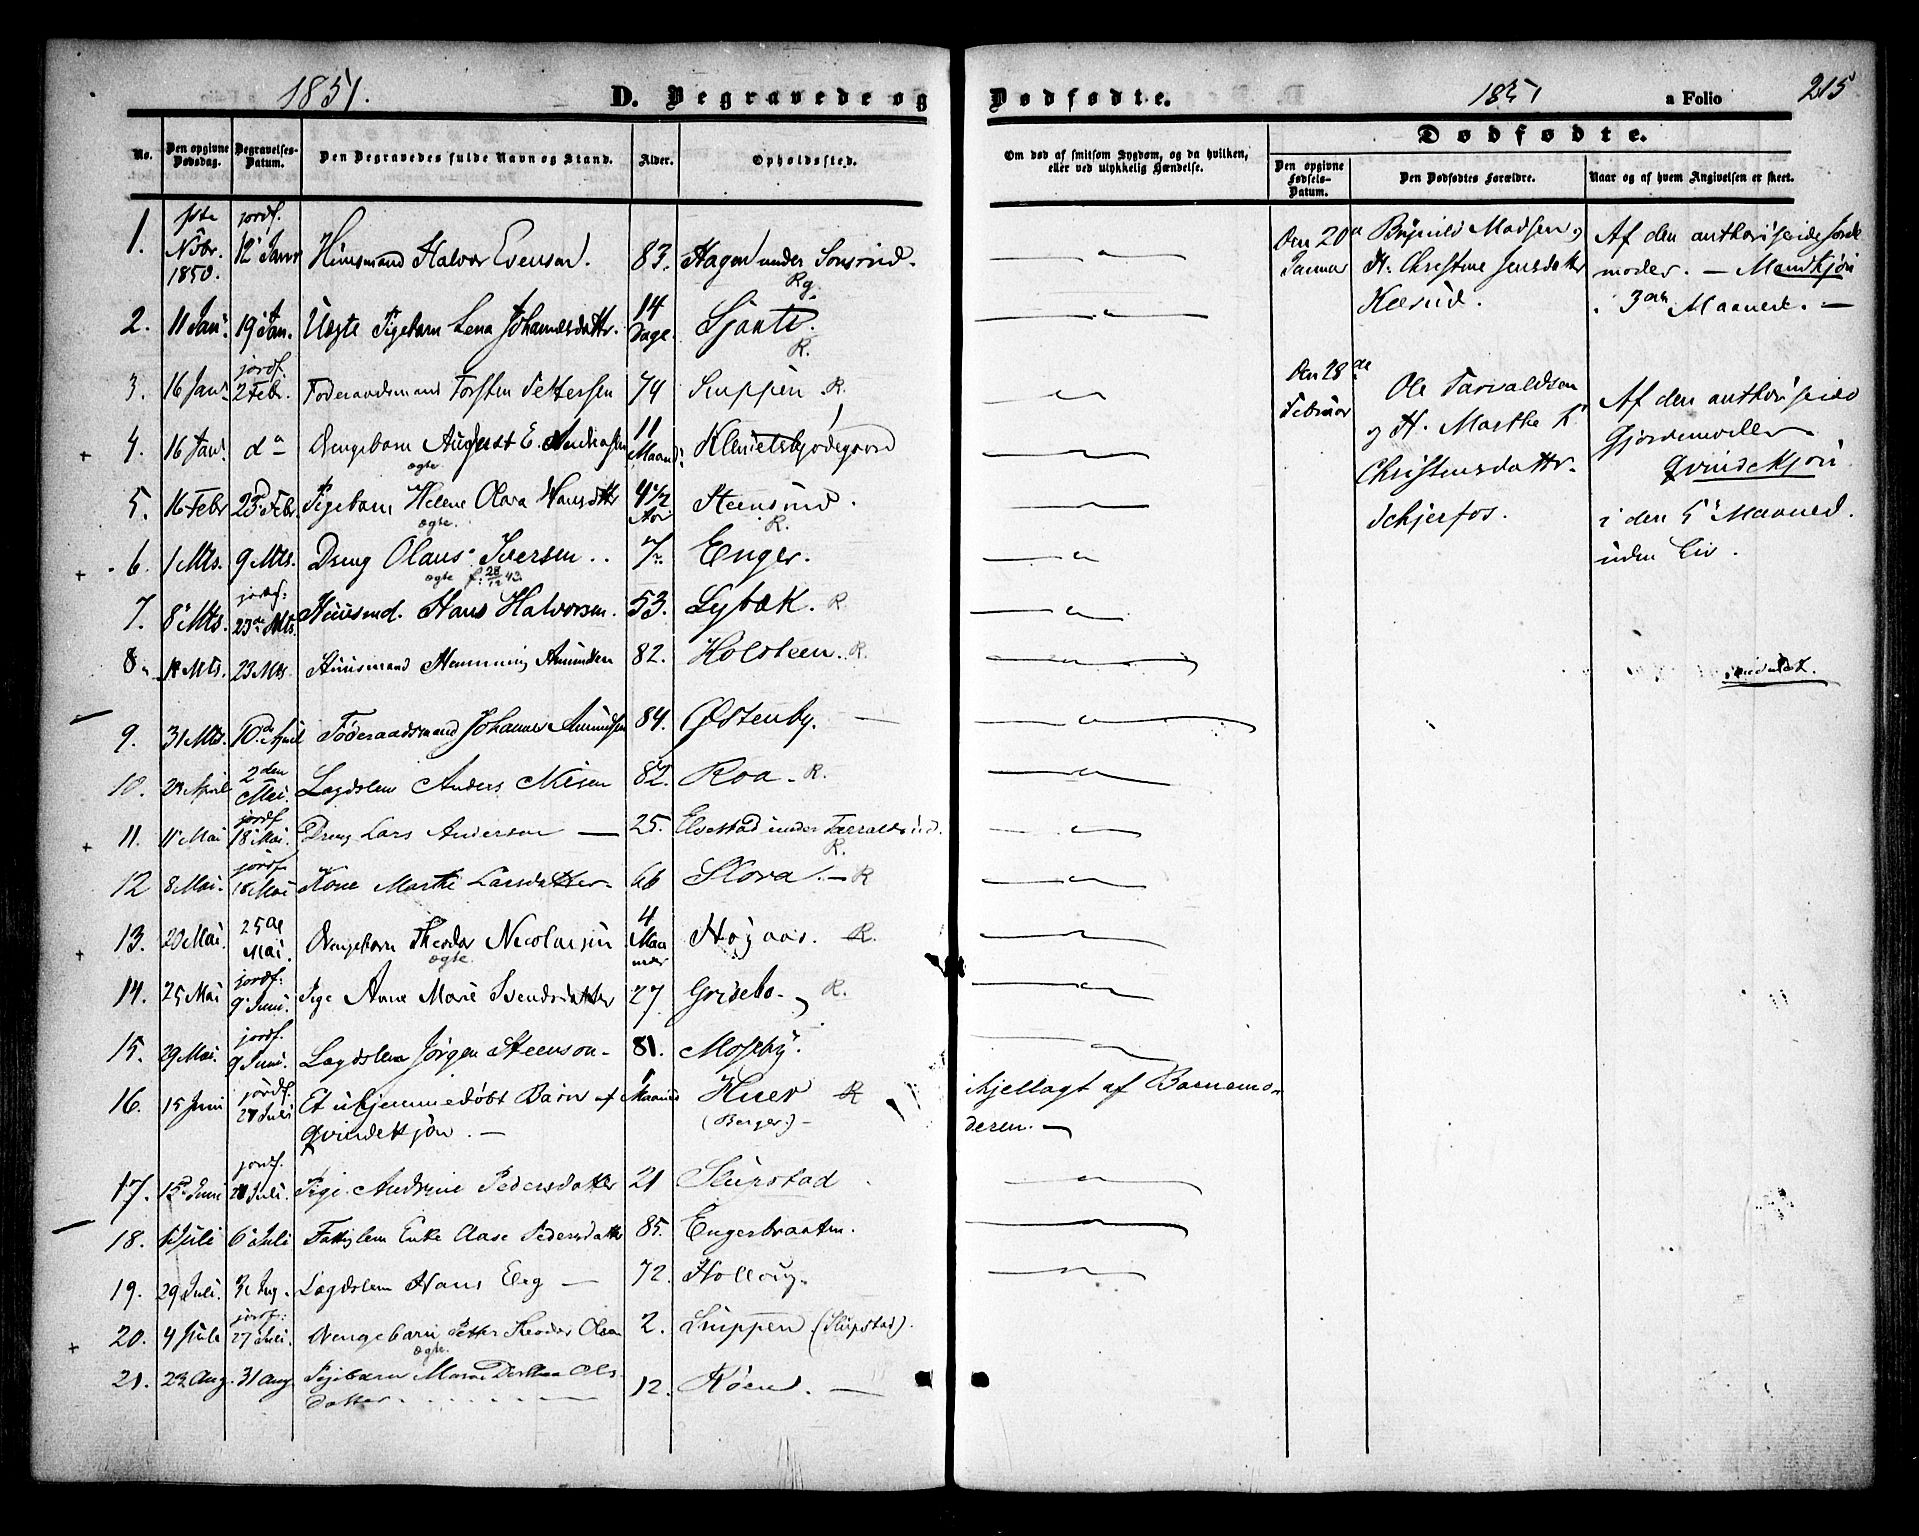 1851. D. Begravede og Dødfødte. 1851 a Folio 215
No. Den opgivne Dødsdag. Begravelses-Datum. Den Begravedes fulde Navn og Stand. Alder. Opholdssted.
Om død af smitsom Sygdom, og da hvilken, eller ved ulykkelig Hændelse.
Dødfødte.
Den opgivne Fødsels-Datum. Den Dødfødtes Forældre. Naar og af hvem Angivelsen er skeet.
1. Nvbr. 1850. jordf. 12 Janr Huusmand Halvor Evensen. 83. Hagen under Sonsrud. Rg.
2. 11 Jan. 19 Jan. Uægte Pigebarn Lena Johannesdattr. 14 Dage. R.
3. 16 Jan. jordf. 2 Febr. Foderaadsmand Torsten Pettersen 74 Suppen R.
4. 16 Jan. da Drengebarn August E. Andreasen ægte 11 Maand.
5. 16 Febr 23 Febr. Pigebarn Helene Olava Hansdttr ægte. 4 1/2 Aar Steensrud. R.
6. 1 Mts. 9 Mts. Dreng Olaus Iversen .. ægte f. 28/12 43. 7 Enger.
7. 8 Mts. jordf. 23de Mts. Huusmd. Hans Halvorsen. 53. Lybæk. R.
8. 18 Mts. 23 Mts. Huusmand Flemming Amundsen 82. Holsteen. R.
9. 31 Mts. 10de April Føderaadsmand Johannes Amundsen 84. Østenby. —
10. 24 April 2den Mai. Lagdslem Anders Nilsen 82. Roa. R.
11. 11 Mai jordf. 18 Mai. Dreng Lars Anderson — 25. Elvestad under Tarraldsrud. R.
12 8 Mai. jordf. 18 Mai Kone Marthe Larsdatter 66 Slora. — R
13. 20 Mai. 25de Mai. Drengebarn Theodor Nicolaisen ægte. 4 Maaneder Høgaas. R.
14. 25 Mai jordf: 9 Juni. Pige Anne Marie Svendsdatter 27 Grisebo. R.
15. 29 Mai. jordf. 9 Juni. Lagdslem Jørgen Steenson 81. Moseby.
16. 15 Juni jordf. 27 Juli Et uhjemmedøbt Barn af Qvindekjøn. — Maaned Huer (Berger) — R
ihjellagt af Barnemoderen. —
17. 15 Juni jordf. 20 Juli. Pige Andrine Pedersdatter 21 Slupstad
18. 1 Juli 6 Juli Fattiglem Enke Aase Pedersdatter 85. Engerbraaten.
19. 29 Juli. 3 Aug. Lagdslem Hans Elg — 72. Hollsug.
20. 4 Juli jordf: 27 Juli. Drengebarn Petter Theodor Olsen ægte. 2. Suppen (Slupstad).
21. 23 Aug. 31 Aug. Pigebarn Maren Dorthea Olsdatter. 12. Køen. —
Den 20de Januar
Madsen og H. Christine Jensdatter Heesrud.
Af den authoriserede Jordemoder. — Mandkjøn i 3die Maaned. —
Den 28de Februar
Ole Tarraldsen og H. Marthe K. Christensdattr. Schjerfos.
Af den authoriserede Gjordemoder Qvindekjøn i den 5te Maaned. uden Liv.